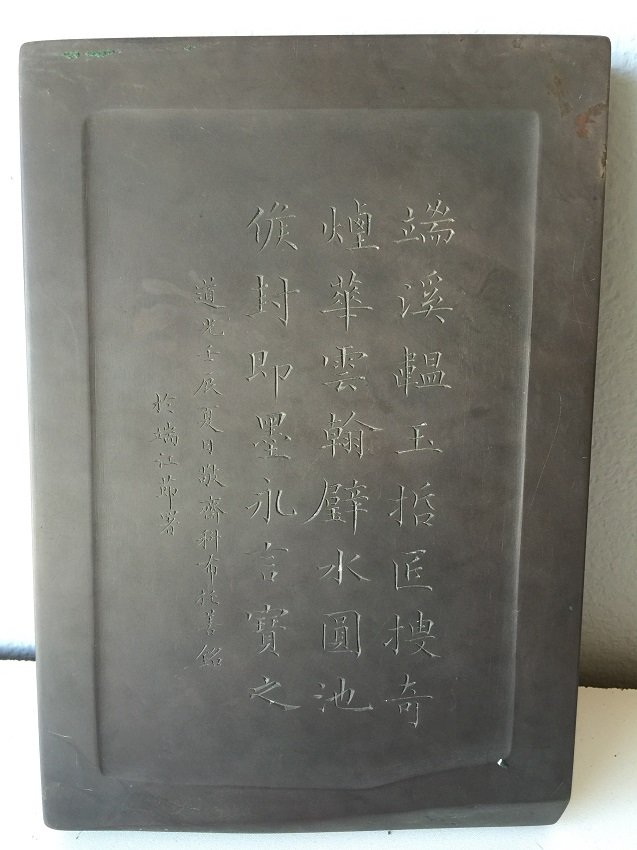 端溪韞玉哲匠搜奇
煙華雲翰璧水圓池
侯封即墨永言寶之
道光壬辰夏日敬齋科布善銘
於端江節署